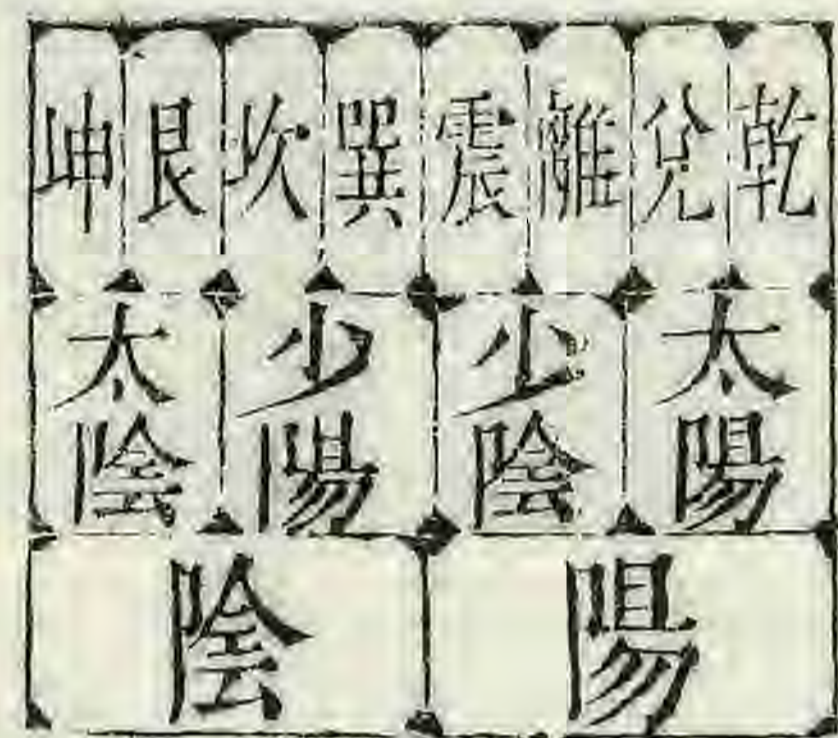 乾 兌 離 震 巽 坎 艮 坤
太陽 少陰 少陽 太陰
陽 陰